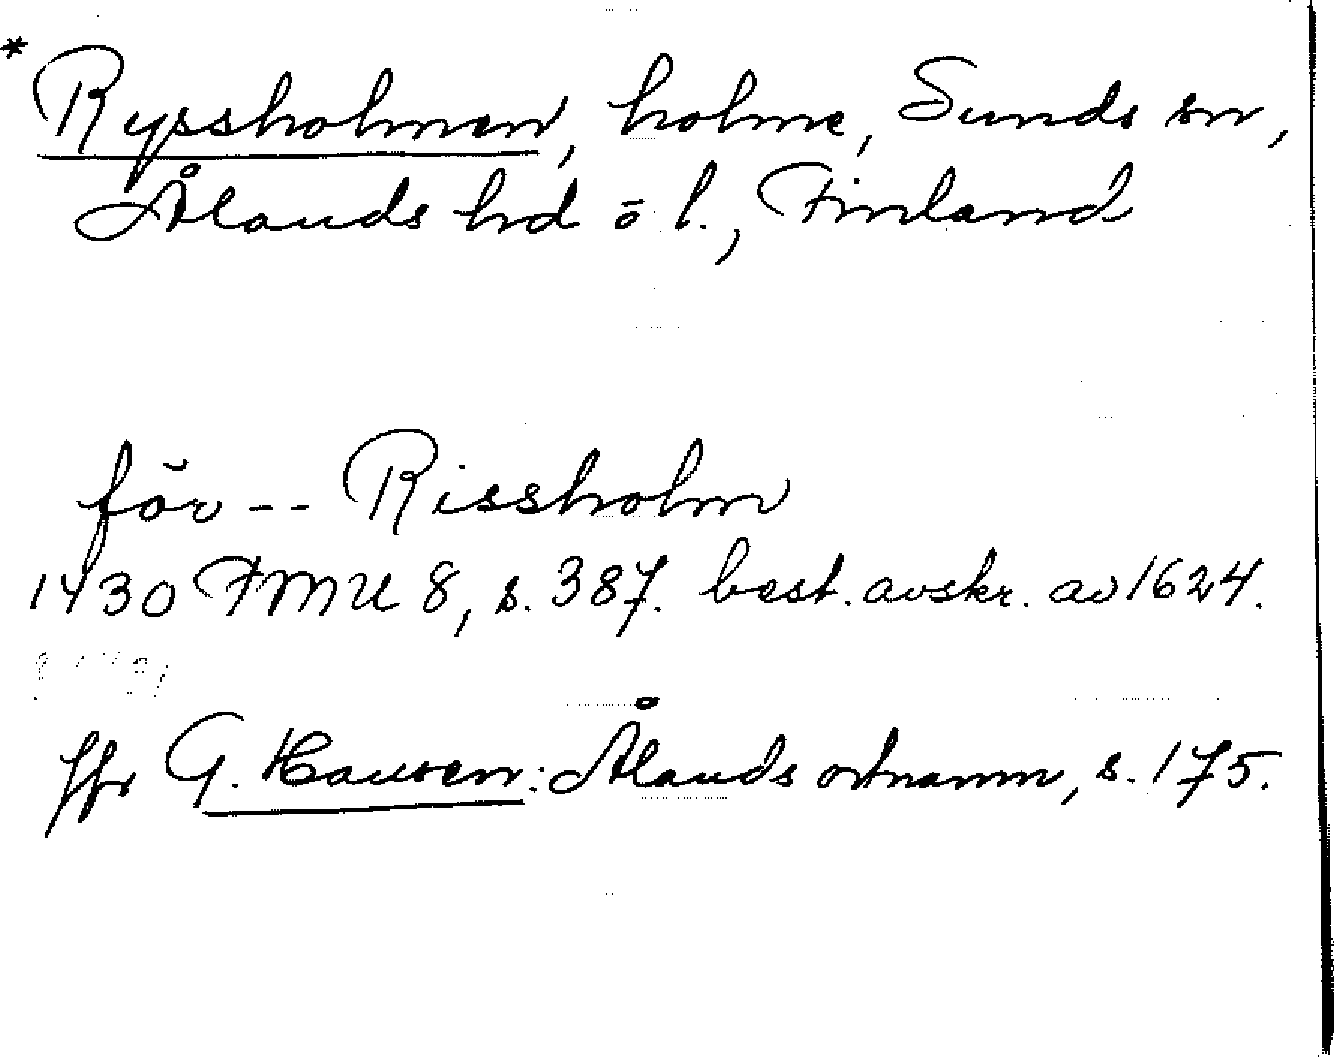 * Ryssholmen, holme, Sunds sn,
Ålands hd o l., Finland
för -- Rissholm
1430 FMU 8, s. 387. best. avskr. av 1624.
Jfr G. Hausen: Ålands ortnamn, s. 175.